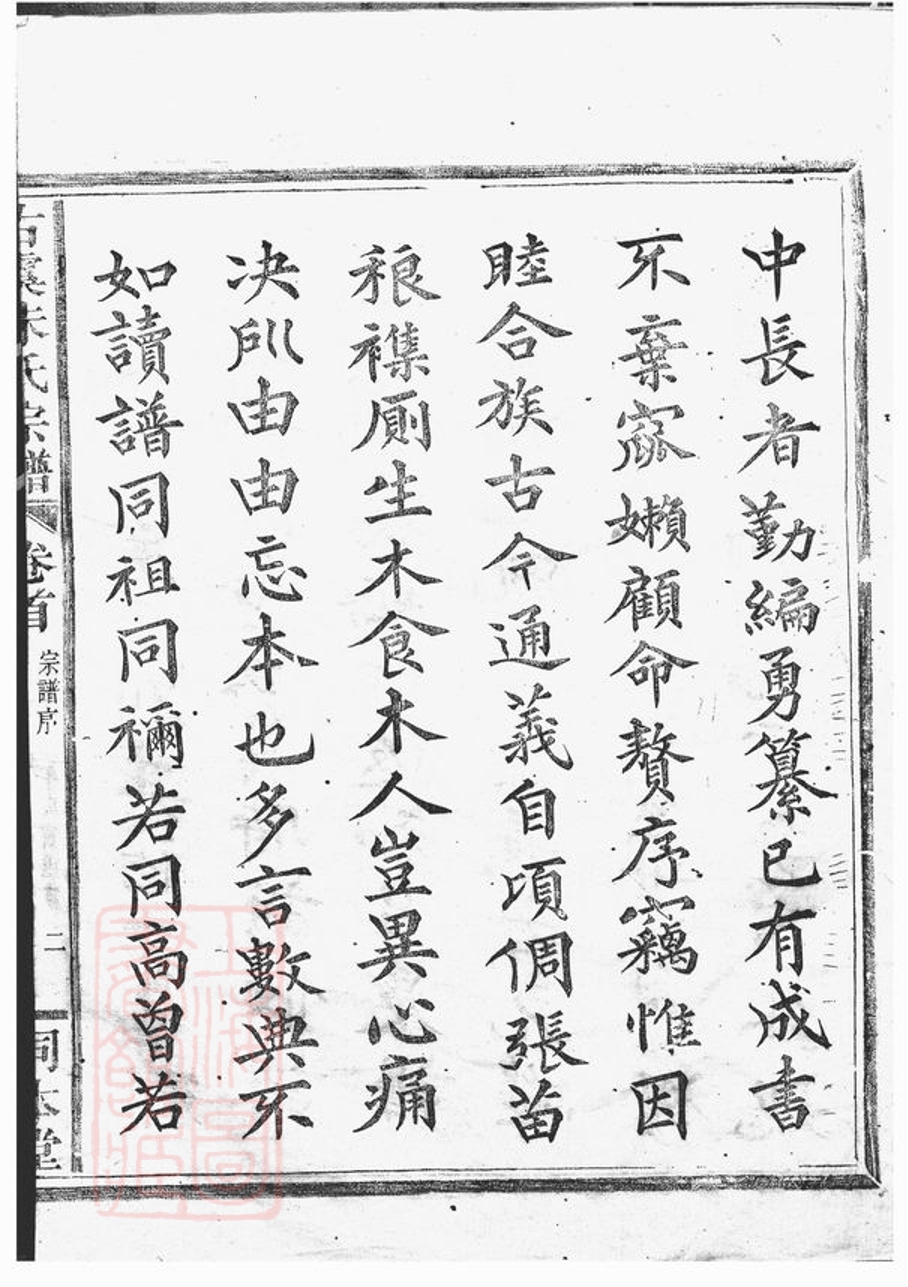 中長者勤編勇纂已有成書
不棄寂嬾顧命贅序竊惟因
睦合族古今通義自頃倜張苗
稂襍厠生木食木人豈異心痛
决所由由忘本也多言數典不
如讀譜同祖同禰若同高曾若
古虞朱氏宗譜
卷首
宗譜序
二
同本堂